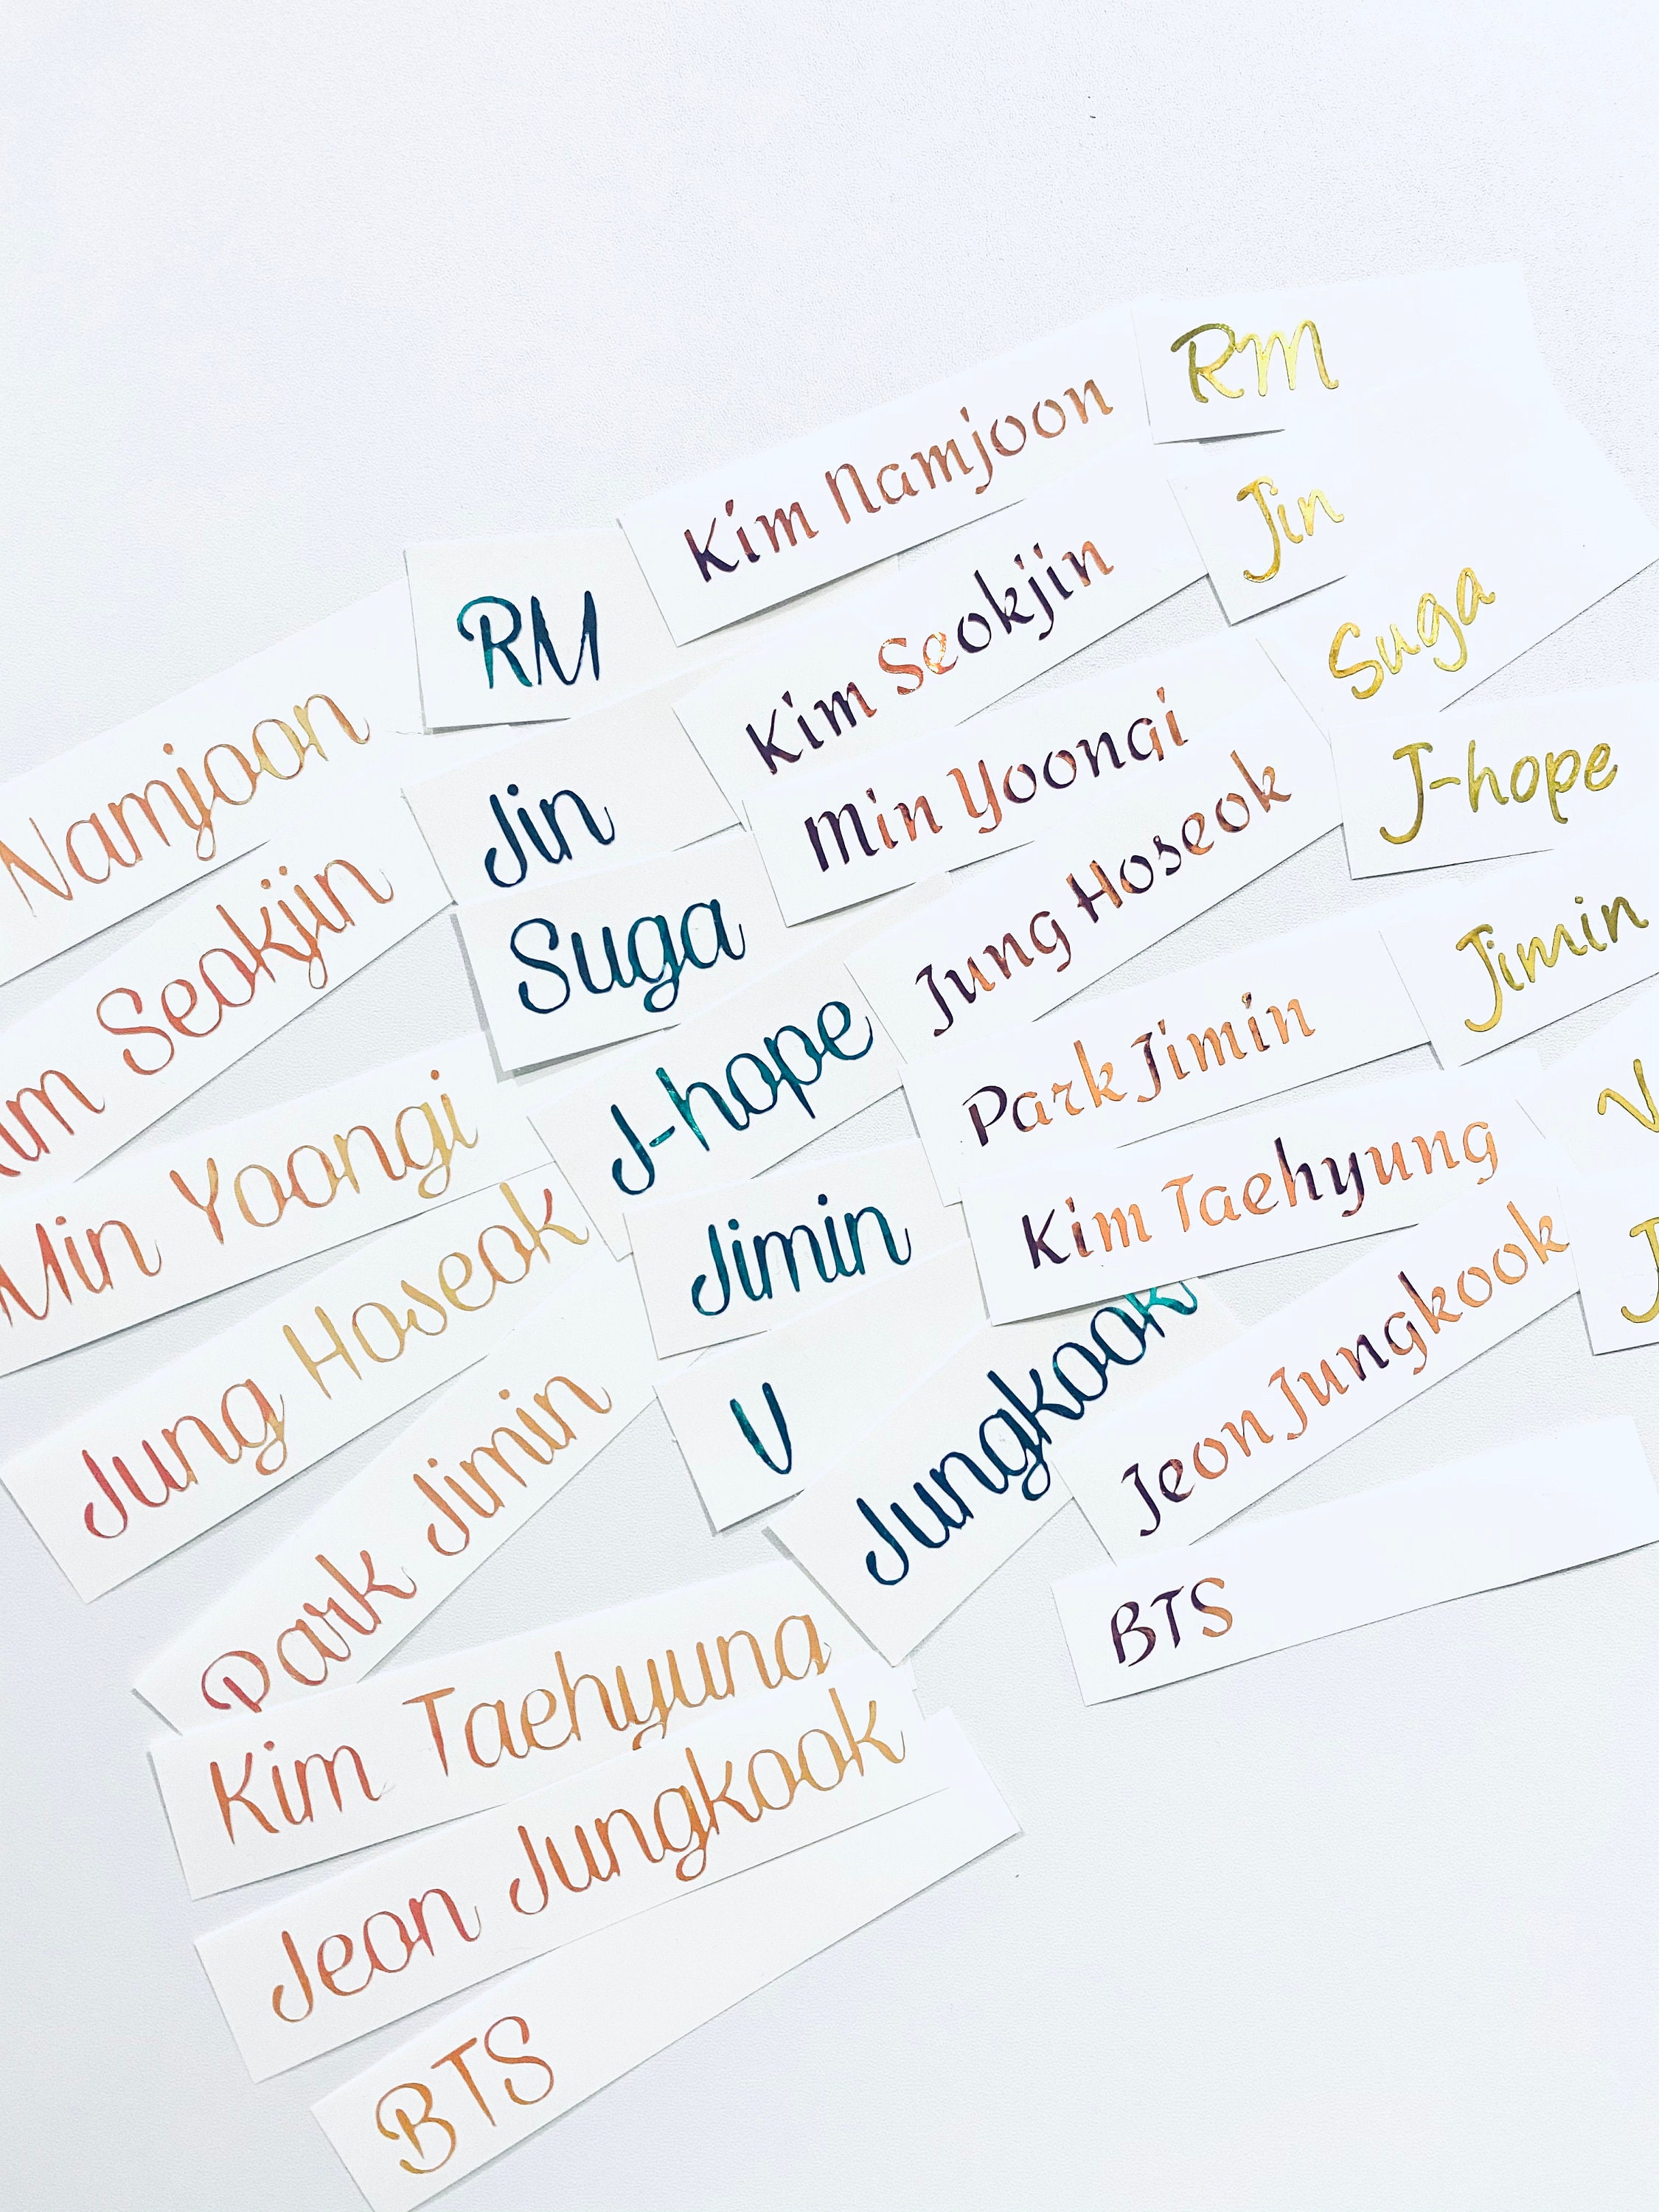 Namjoon
Kim Seokjin
Min Yoongi
Jung Hoseok
Park Jimin
Kim Taehyung
Jeon Jungkook
BTS
RM
Jin
Suga
J-hope
Jimin
V
Jungkook
Kim Namjoon
Kim Seokjin
Min Yoongi
Jung Hoseok
Park Jimin
Kim Taehyung
Jeon Jungkook
BTS
RM
Jin
Suga
J-hope
Jimin
V
J